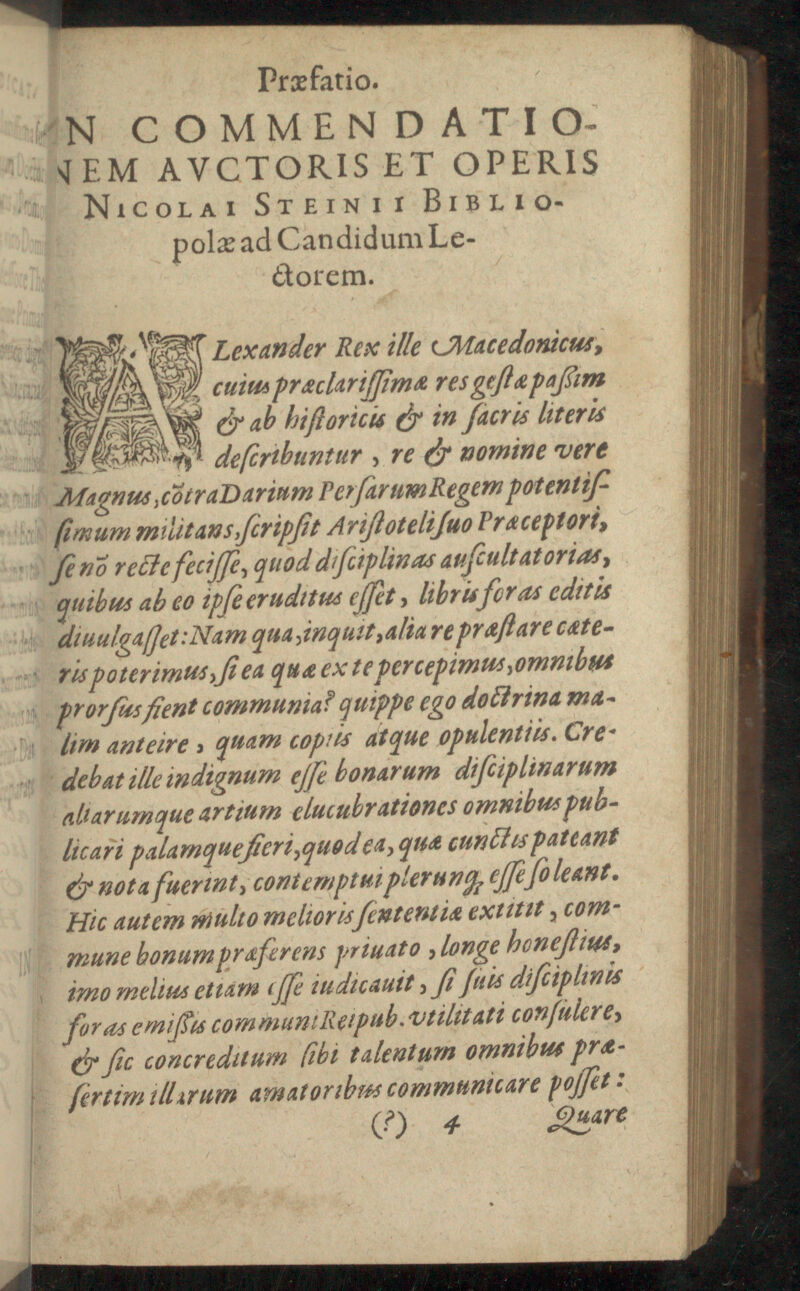 Præfatio.
IN COMMENDATIO-
NEM AVCTORIS ET OPERIS
NICOLAI STEINII BIBLIO-
polæ ad Candidum Le-
ctorem.
ALexander Rex ille Macedonicus,
cuius præclariſſimæ res geſtæ paſſim
& ab hiſtoricis & in ſacris literis
deſcribuntur , re & nomine vere
Magnus, cōtra Darium Perſarum Regem potentiſ-
ſimum militans, ſcripſit Ariſtoteli ſuo Præceptori,
ſe nō recte feciſſe, quod diſciplinas auſcultatorias,
quibus ab eo ipſe eruditus eſſet, libris foras editis
diuulgaſſet: Nam qua, inquit, alia re præſtare cæte-
ris poterimus, ſi ea quæ ex te percepimus, omnibus
prorſus fient communia? quippe ego doctrina ma-
lim anteire , quam copiis atque opulentiis. Cre-
debat ille indignum eſſe bonarum diſciplinarum
aliarumque artium elucubrationes omnibus pub-
licari palamque fieri, quod ea, quæ cunctis pateant
& nota fuerint, contemptui plerunq; eſſe ſoleant.
Hic autem multo melioris ſententiæ extitit , com-
mune bonum præferens priuato , longe honeſtius,
imo melius etiam eſſe iudicauit , ſi ſuis diſciplinis
foras emiſſis communi Reipub. vtilitati conſulere,
& ſic concreditum ſibi talentum omnibus præ-
ſertim illarum amatoribus communicare poſſet :
(?) 4 Quare